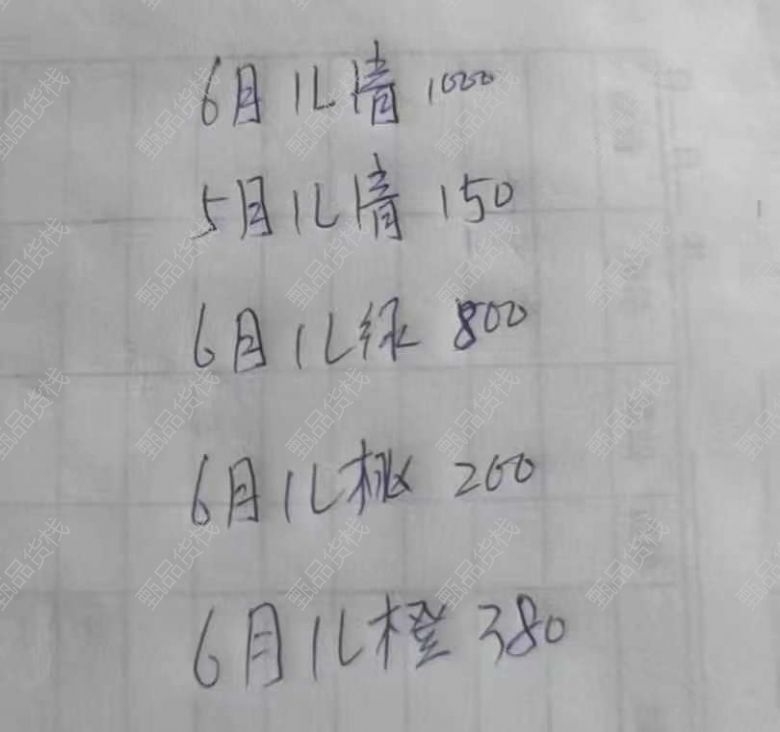 6月1L清1000
5月1L清150
6月1L绿800
6月1L桃200
6月1L橙380
甄品货栈